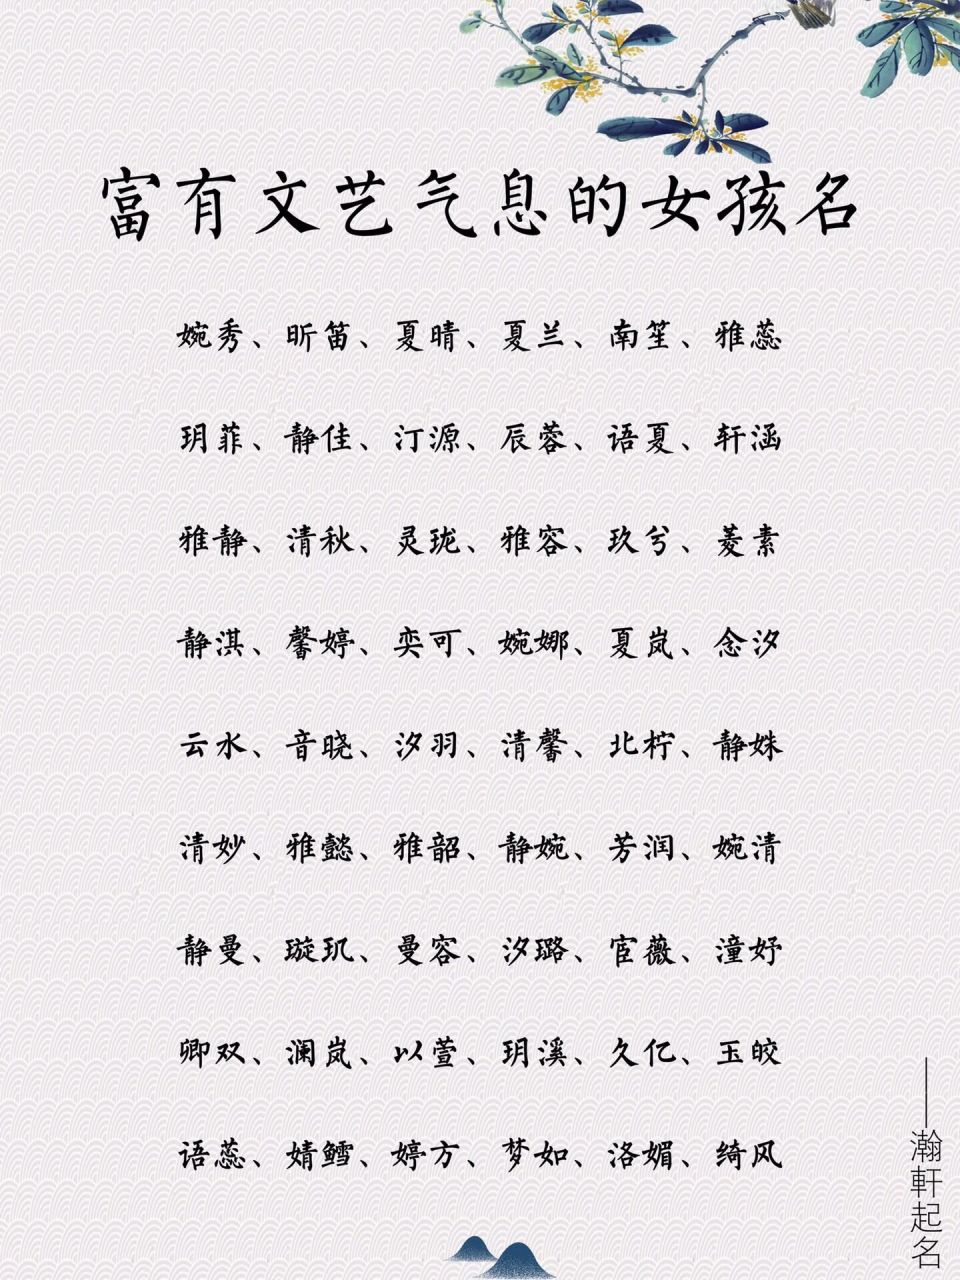 富有文艺气息的女孩名
婉秀、昕笛、夏晴、夏兰、南笙、雅蕊
玥菲、静佳、汀源、辰蓉、语夏、轩涵
雅静、清秋、灵珑、雅容、玖兮、菱素
静淇、馨婷、奕可、婉娜、夏岚、念汐
云水、音晓、汐羽、清馨、北柠、静姝
清妙、雅懿、雅韶、静婉、芳润、婉清
静曼、璇玑、曼容、汐璐、宦薇、潼妤
卿双、澜岚、以萱、玥溪、久亿、玉皎
语蕊、婧鳕、婷方、梦如、洛媚、绮风
——瀚軒起名